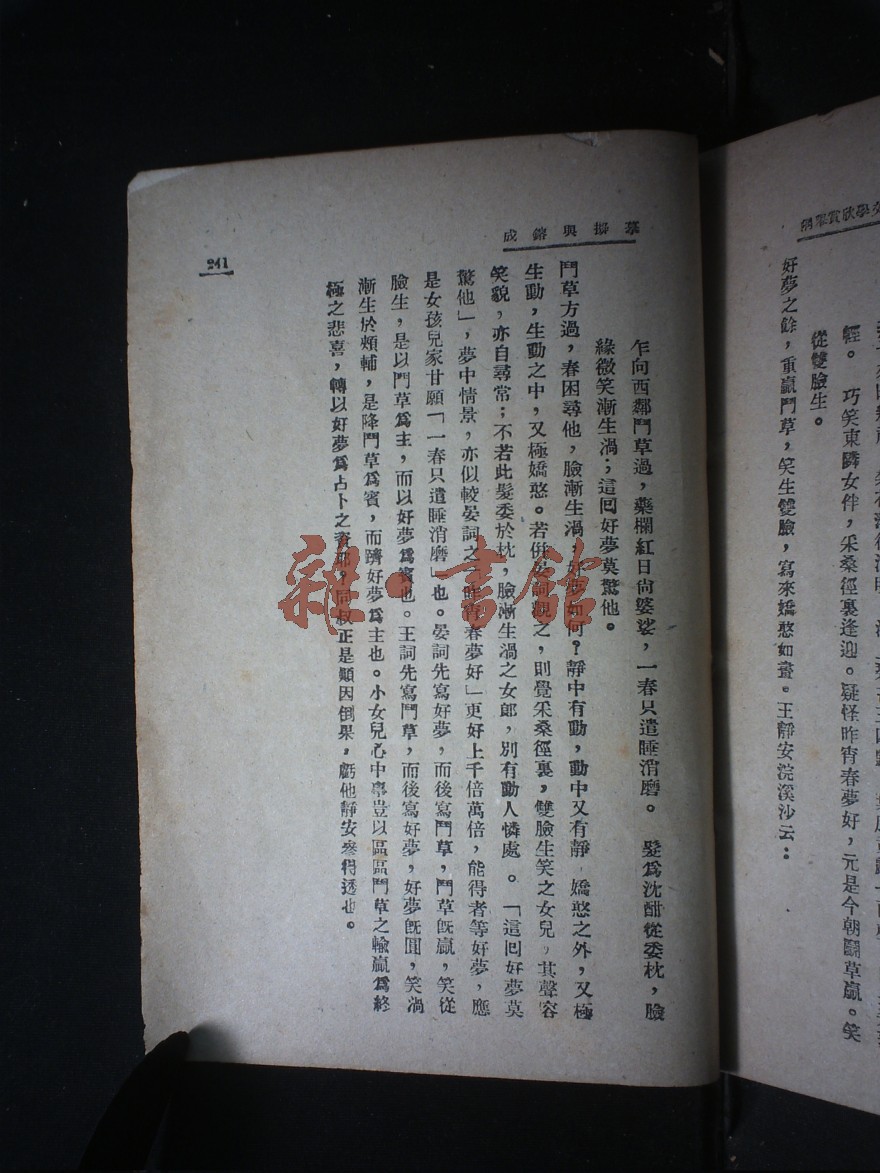 賞舉網
輕。　巧笑東隣女伴，采桑徑裏逢迎。疑怪昨宵春夢好，元是今朝鬭草贏。笑
從雙臉生。
好夢之餘，重贏鬥草，笑生雙臉，寫來嬌憨如畫。王靜安浣溪沙云：
摹擬與鎔成
乍向西鄰鬥草過，藥欄紅日尙婆娑，一春只遣睡消磨。　髮爲沈酣從委枕，臉
緣微笑漸生渦；這囘好夢莫驚他。
鬥草方過，春困尋他，臉漸生渦，好夢如何？靜中有動，動中又有靜，嬌憨之外，又極
生動，生動之中，又極嬌憨。若併晏詞觀之，則覺采桑徑裏，雙臉生笑之女兒，其聲容
笑貌，亦自尋常；不若此髮委於枕，臉漸生渦之女郎，別有動人憐處。「這囘好夢莫
驚他」，夢中情景，亦似較晏詞之「昨宵春夢好」更好上千倍萬倍，能得者等好夢，應
是女孩兒家甘願「一春只遣睡消磨」也。晏詞先寫好夢，而後寫鬥草，鬥草旣贏，笑從
臉生，是以鬥草爲主，而以好夢爲賓也。王詞先寫鬥草，而後寫好夢，好夢旣圓，笑渦
漸生於頰輔，是降鬥草爲賓，而躋好夢爲主也。小女兒心中專豈以區區鬥草之輸贏爲終
極之悲喜，轉以好夢爲占卜之資耶，同叔正是顚因倒果，虧他靜安參得透也。
241
雜·書館